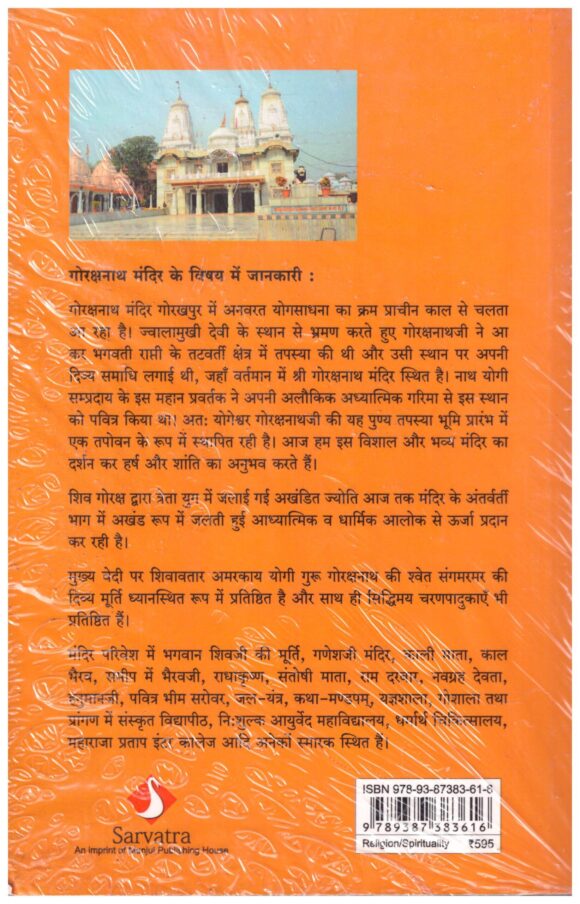 गोरक्षनाथ मंदिर के विषय में जानकारी :
गोरक्षनाथ मंदिर गोरखपुर में अनवरत योगसाधना का क्रम प्राचीन काल से चलता
आ रहा है। ज्वालामुखी देवी के स्थान से भ्रमण करते हुए गोरक्षनाथजी ने आ
कर भगवती राप्ती के तटवर्ती क्षेत्र में तपस्या की थी और उसी स्थान पर अपनी
दिव्य समाधि लगाई थी, जहाँ वर्तमान में श्री गोरक्षनाथ मंदिर स्थित है। नाथ योगी
सम्प्रदाय के इस महान प्रवर्तक ने अपनी अलौकिक अध्यात्मिक गरिमा से इस स्थान
को पवित्र किया था। अत: योगेश्वर गोरक्षनाथजी की यह पुण्य तपस्या भूमि प्रारंभ में
एक तपोवन के रूप में स्थापित रही है। आज हम इस विशाल और भव्य मंदिर का
दर्शन कर हर्ष और शांति का अनुभव करते हैं।
शिव गोरक्ष द्वारा त्रेता युग में जलाई गई अखंडित ज्योति आज तक मंदिर के अंतर्वर्ती
भाग में अखंड रूप में जलती हुई आध्यात्मिक व धार्मिक आलोक से ऊर्जा प्रदान
कर रही है।
मुख्य वेदी पर शिवावतार अमरकाय योगी गुरू गोरक्षनाथ की श्वेत संगमरमर की
दिव्य मूर्ति ध्यानस्थित रूप में प्रतिष्ठित है और साथ ही सिद्धिमय चरणपादुकाएँ भी
प्रतिष्ठित हैं।
मंदिर परिवेश में भगवान शिवजी की मूर्ति, गणेशजी मंदिर, काली माता, काल
भैरव, समीप में भैरवजी, राधाकृष्ण, संतोषी माता, राम दरबार, नवग्रह देवता,
हनुमानजी, पवित्र भीम सरोवर, जल-यंत्र, कथा-मण्डपम्, यज्ञशाला, गोशाला तथा
प्रांगण में संस्कृत विद्यापीठ, नि:शुल्क आयुर्वेद महाविद्यालय, धर्मार्थ चिकित्सालय,
महाराजा प्रताप इंटर कालेज आदि अनेकों स्मारक स्थित हैं।
Sarvatra
An Imprint of Manjul Publishing House
ISBN 978-93-87383-61-6
9 789387 383616
Religion/Spirituality ₹595